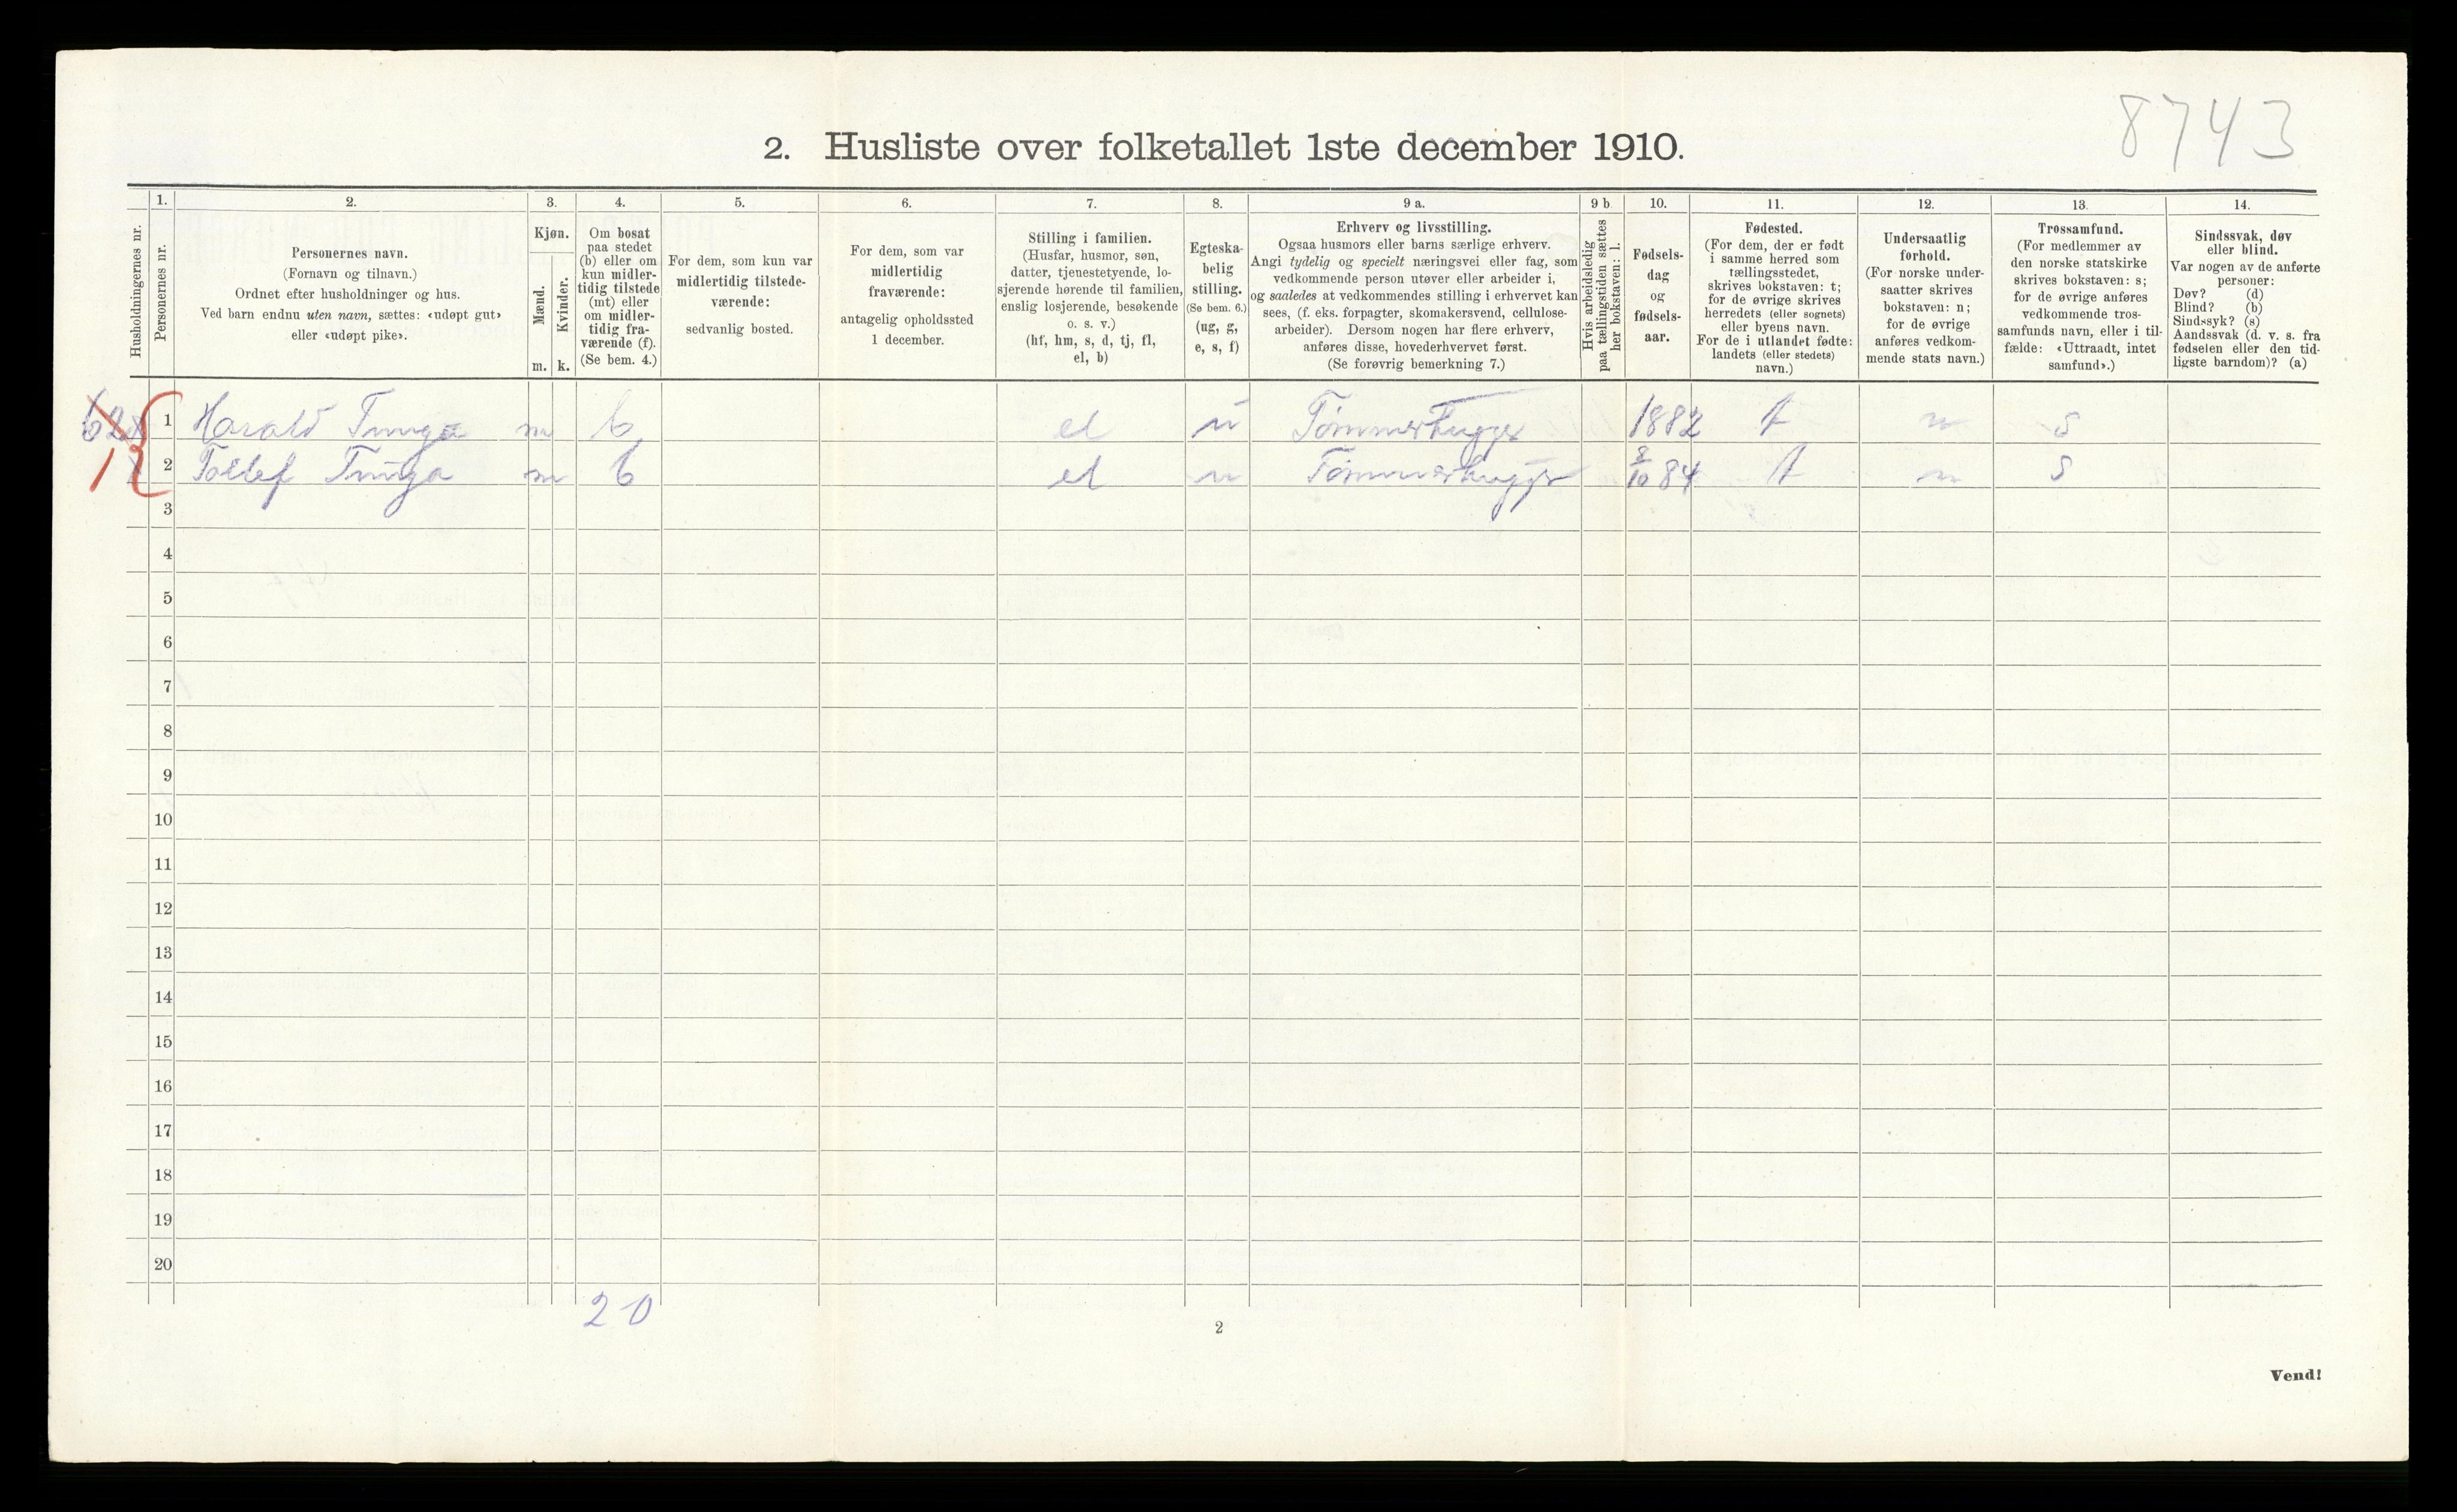 8743
2. Husliste over folketallet 1ste december 1910.
Husholdningernes nr.
1.
Personernes nr.
2.
Personernes navn.
(Fornavn og tilnavn.)
Ordnet efter husholdninger og hus.
Ved barn endnu uten navn, sættes: «udøpt gut»
eller «udøpt pike».
3.
Kjøn.
Mænd.
m.
Kvinder.
k.
4.
Om bosat
paa stedet
(b) eller om
kun midler-
tidig tilstede
(mt) eller
om midler-
tidig fra-
værende (f).
(Se bem. 4.)
5.
For dem, som kun var
midlertidig tilstede-
værende:
sedvanlig bosted.
6.
For dem, som var
midlertidig
fraværende:
antagelig opholdssted
1 december.
7.
Stilling i familien.
(Husfar, husmor, søn,
datter, tjenestetyende, lo-
sjerende hørende til familien,
enslig losjerende, besøkende
o. s. v.)
(hf, hm, s, d, tj, fl,
el, b)
8.
Egteska-
belig
stilling.
(Se bem. 6.)
(ug, g,
e, s, f)
9 a.
Erhverv og livsstilling.
Ogsaa husmors eller barns særlige erhverv.
Angi tydelig og specielt næringsvei eller fag, som
vedkommende person utøver eller arbeider i,
og saaledes at vedkommendes stilling i erhvervet kan
sees, (f. eks. forpagter, skomakersvend, cellulose-
arbeider). Dersom nogen har flere erhverv,
anføres disse, hovederhvervet først.
(Se forøvrig bemerkning 7.)
9 b
Hvis arbeidsledig
paa tællingstiden sættes
her bokstaven: l.
10.
Fødsels-
dag
og
fødsels-
aar.
11.
Fødested.
(For dem, der er født
i samme herred som
tællingsstedet,
skrives bokstaven: t;
for de øvrige skrives
herredets (eller sognets)
eller byens navn.
For de i utlandet fødte:
landets (eller stedets)
navn.)
12.
Undersaatlig
forhold.
(For norske under-
saatter skrives
bokstaven: n;
for de øvrige
anføres vedkom-
mende stats navn.)
13.
Trossamfund.
(For medlemmer av
den norske statskirke
skrives bokstaven: s;
for de øvrige anføres
vedkommende tros-
samfunds navn, eller i til-
fælde: «Uttraadt, intet
samfund».)
14.
Sindssvak, døv
eller blind.
Var nogen av de anførte
personer:
Døv? (d)
Blind? (b)
Sindssyk? (s)
Aandssvak (d. v. s. fra
fødselen eller den tid-
ligste barndom)? (a)
1 Harald Tunga m b el u Tømmerhugger 1882 t n s
2 Tollef Tunga m b el u Tømmerhugger 8/10 84 t n s
3
4
5
6
7
8
9
10
11
12
13
14
15
16
17
18
19
20
2 0
2
Vend!